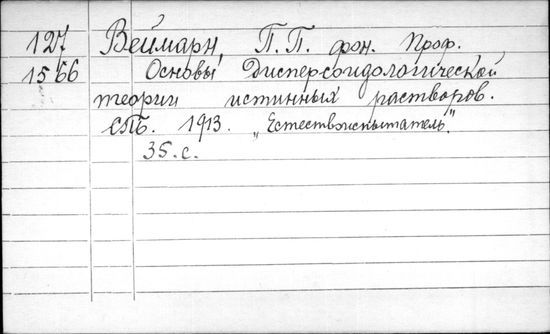 127 Веймарн, П. П. фон. Проф.
1566 Основы Дисперсоидологической
теории истинных растворов.
СПБ. 1913. „Естествоиспытатель."
35. с.